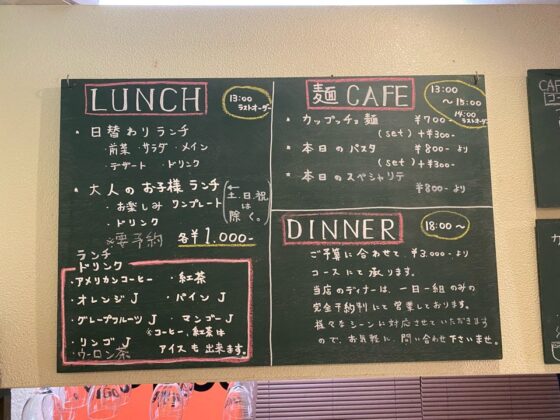 LUNCH
13:00
ラストオーダー
・日替わりランチ
前菜・サラダ・メイン
・デザート ・ドリンク
・大人のお子様ランチ
(←土、日、祝は除く。)
・お楽しみワンプレート
・ドリンク
※要予約 各¥1.000-
ランチ
ドリンク
・アメリカンコーヒー ・紅茶
・オレンジJ ・パインJ
・グレープフルーツJ ・マンゴーJ
・リンゴJ
・ウーロン茶
※コーヒー、紅茶は
アイスも出来ます。
麺 CAFE
13:00
～15:00
14:00
ラストオーダー
・カップッチョ麺 ¥700-
(set)+¥300-
・本日のパスタ ¥800-より
(set)+¥300-
・本日のスペシャリテ
¥800-より
DINNER
18:00～
ご予算に合わせて、¥3.000-より
コースにて承ります。
当店のディナーは、一日一組のみの
完全予約制にて営業しております。
様々なシーンに対応させていただきます
ので、お気軽に、問い合わせ下さいませ。
CAFE